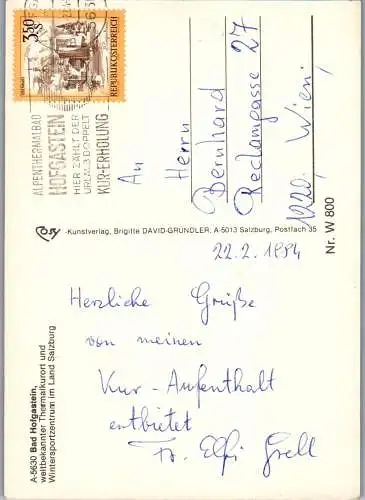 3.50
S
REPUBLIK ÖSTERREICH
ALPENTHERMALBAD
HOFGASTEIN
HIER ZÄHLT DER
URLAUB DOPPELT
KUR-ERHOLUNG
An
Herrn
Bernhard
1220, Wien,
-Kunstverlag, Brigitte DAVID-GRÜNDLER, A-5013 Salzburg, Postfach 35
Nr. W 800
22.2.1984
Herzliche Grüße
von meinen
Kur-Aufenthalt
entbietet
Fr. Elfi Grell
A-5630 Bad Hofgastein,
weltbekannter Thermalkurort und
Wintersportzentrum im Land Salzburg